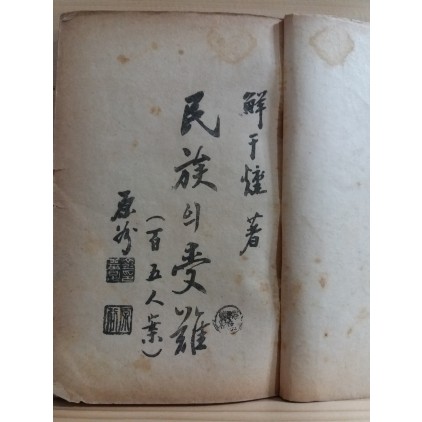 鮮于燻 著
民族의受難
(百五人案)